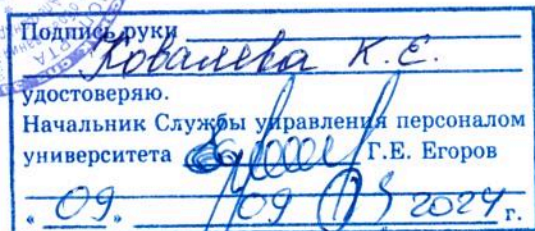 Подпись руки
Ковалева К.Е.
удостоверяю.
Начальник Службы управления персоналом
университета Г.Е. Егоров
« 09 » 09 2024 г.